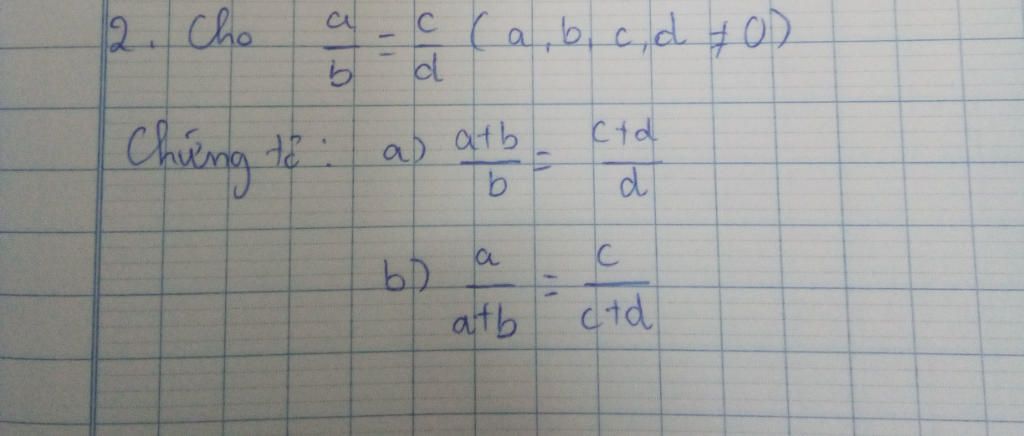 2. Cho a/b = c/d (a, b, c, d ≠ 0)
Chứng tỏ: a) a+b/b = c+d/d
b) a/a+b = c/c+d